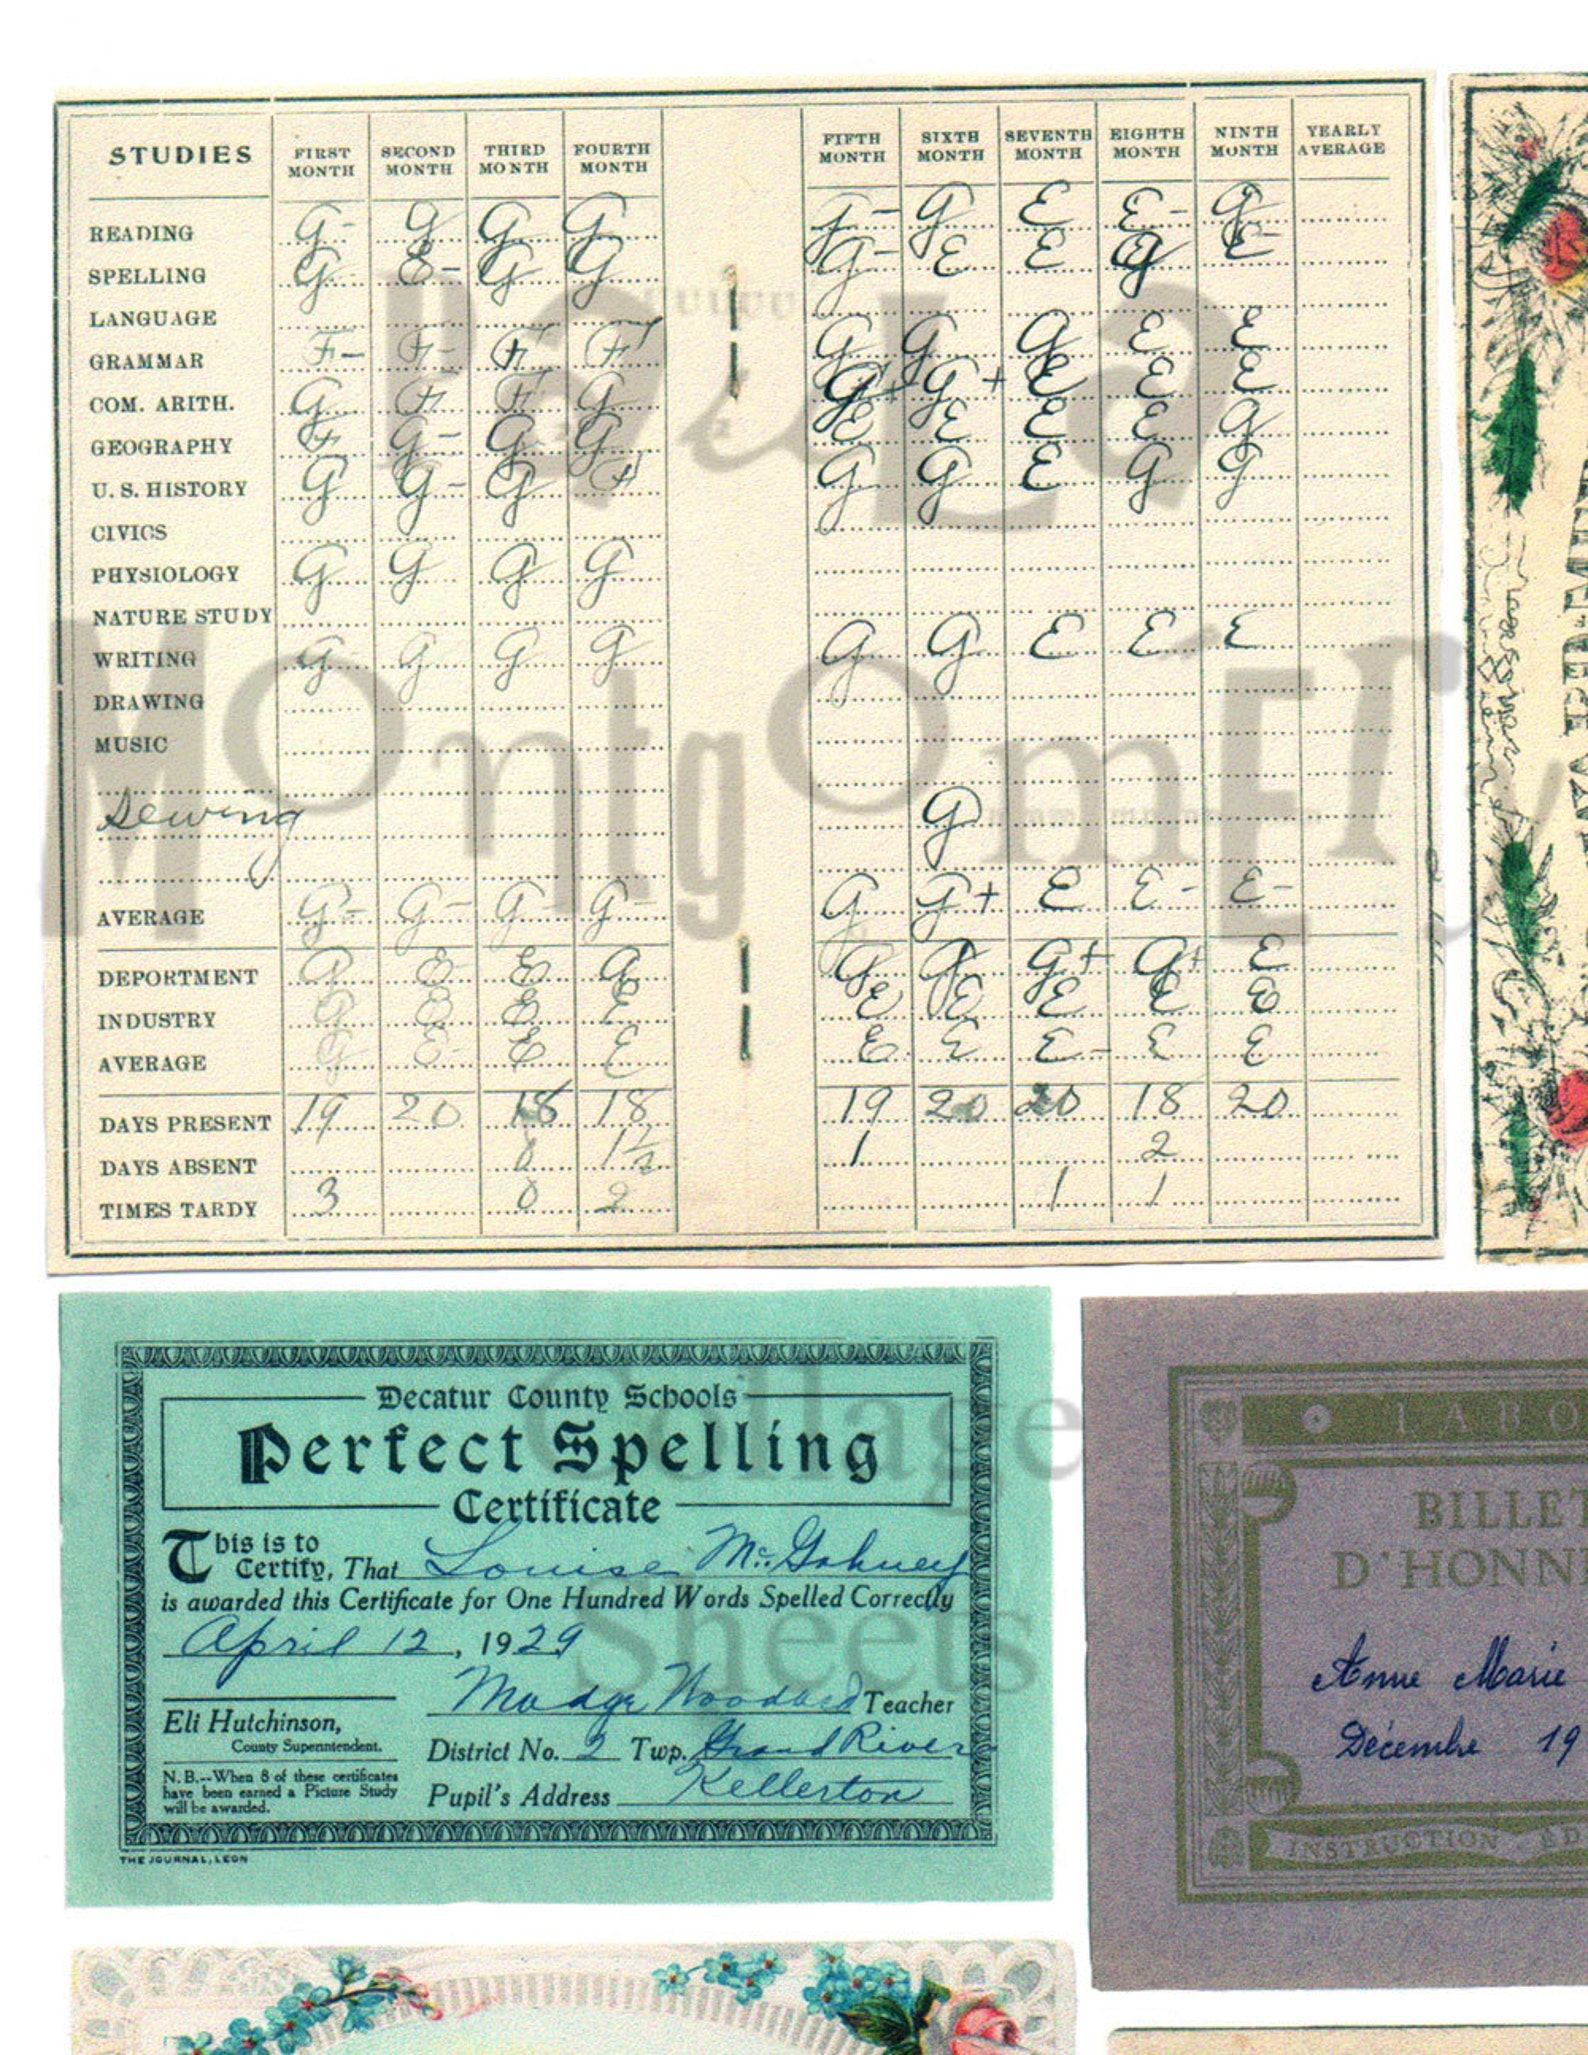 STUDIES FIRST MONTH SECOND MONTH THIRD MONTH FOURTH MONTH FIFTH MONTH SIXTH MONTH SEVENTH MONTH EIGHTH MONTH NINTH MONTH YEARLY AVERAGE
READING G- G G G G- G E E- G
SPELLING G E- G G G- E E G E-
LANGUAGE
GRAMMAR F- F- F F G G G E E
COM. ARITH. G F F G G+ G+ E E E
GEOGRAPHY F G- G G E E E E G
U. S. HISTORY G G- G F G G E G G
CIVICS
PHYSIOLOGY G G G G
NATURE STUDY
WRITING G G G G G G E E E
DRAWING
MUSIC
Sewing G
AVERAGE G- G- G G- G G+ E E- E-
DEPORTMENT G E E G G G G+ G+ E
INDUSTRY G E E E E E E E E
AVERAGE G E- E E E E E- E E
DAYS PRESENT 19 20 18 18 19 20 20 18 20
DAYS ABSENT 0 1½ 1 2
TIMES TARDY 3 0 2 1 1
Paula
Montgomery
Collage
Sheets
Decatur County Schools
Perfect Spelling
Certificate
This is to
Certify, That Louise McGahuey
is awarded this Certificate for One Hundred Words Spelled Correctly
April 12, 1929
Madge Woodard Teacher
Eli Hutchinson,
County Superintendent.
District No. 2 Twp. Grand River
N.B.--When 8 of these certificates
have been earned a Picture Study
will be awarded.
Pupil's Address Kellerton
THE JOURNAL, LEON
LABO
BILLET
D'HONN
Anne Marie
Décembre 19
INSTRUCTION ED